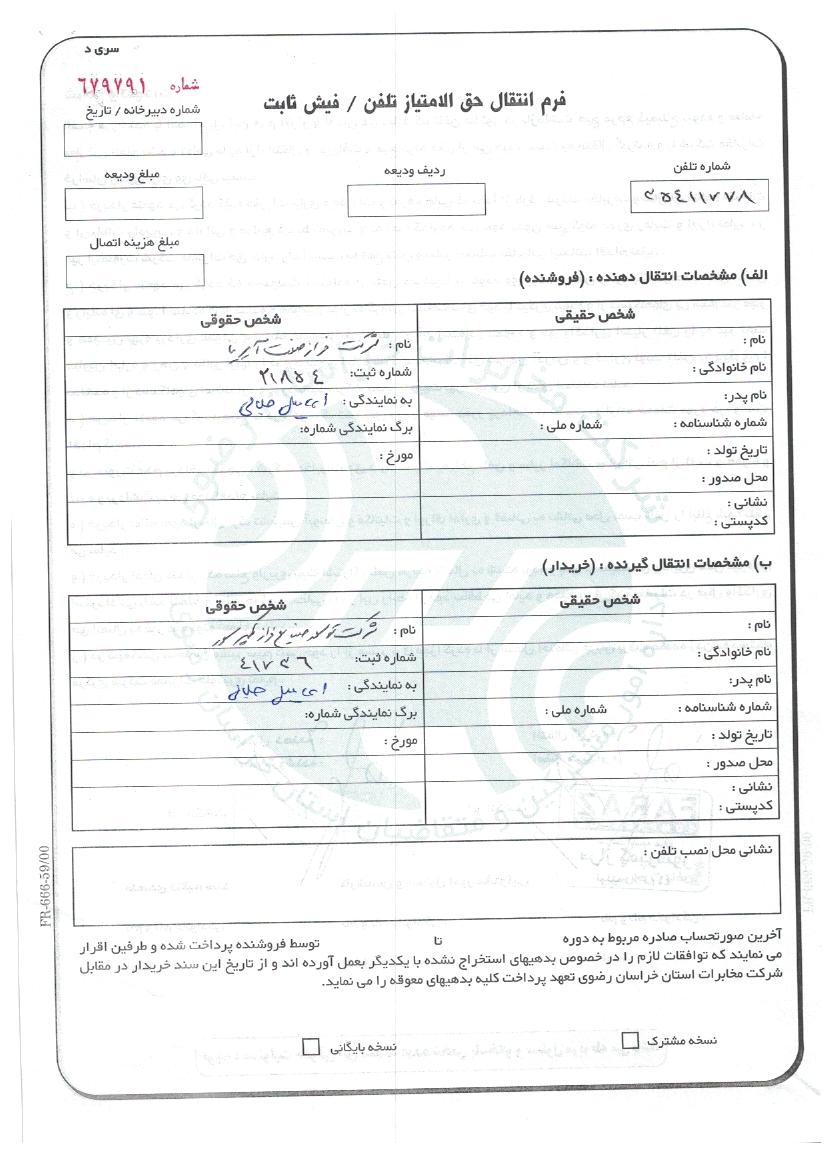 سری د
شماره ۶۷۹۷۹۱
فرم انتقال حق الامتیاز تلفن / فیش ثابت
شماره دبیرخانه / تاریخ
شماره تلفن
ردیف ودیعه
مبلغ ودیعه
۳۵۴۱۱۷۷۸
مبلغ هزینه اتصال
الف) مشخصات انتقال دهنده : (فروشنده)
شخص حقیقی
شخص حقوقی
نام :
نام : شرکت فراز صنعت آریا
نام خانوادگی :
شماره ثبت: ۲۱۸۵۴
نام پدر:
به نمایندگی :
شماره شناسنامه : شماره ملی :
برگ نمایندگی شماره:
تاریخ تولد :
مورخ :
محل صدور :
نشانی :
کدپستی :
ب) مشخصات انتقال گیرنده : (خریدار)
شخص حقیقی
شخص حقوقی
نام :
نام : شرکت توسعه صنایع فراز
نام خانوادگی :
شماره ثبت: ۴۱۷۳۶
نام پدر:
به نمایندگی :
شماره شناسنامه : شماره ملی :
برگ نمایندگی شماره:
تاریخ تولد :
مورخ :
محل صدور :
نشانی :
کدپستی :
نشانی محل نصب تلفن :
FR-666-59/00
آخرین صورتحساب صادره مربوط به دوره تا توسط فروشنده پرداخت شده و طرفین اقرار
می نمایند که توافقات لازم را در خصوص بدهیهای استخراج نشده با یکدیگر بعمل آورده اند و از تاریخ این سند خریدار در مقابل
شرکت مخابرات استان خراسان رضوی تعهد پرداخت کلیه بدهیهای معوقه را می نماید.
نسخه مشترک
نسخه بایگانی